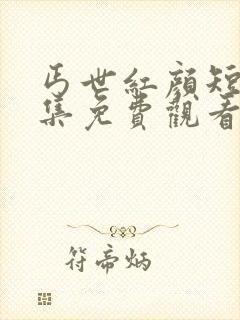 丐世紅顏短
集免費觀看
符帝炳